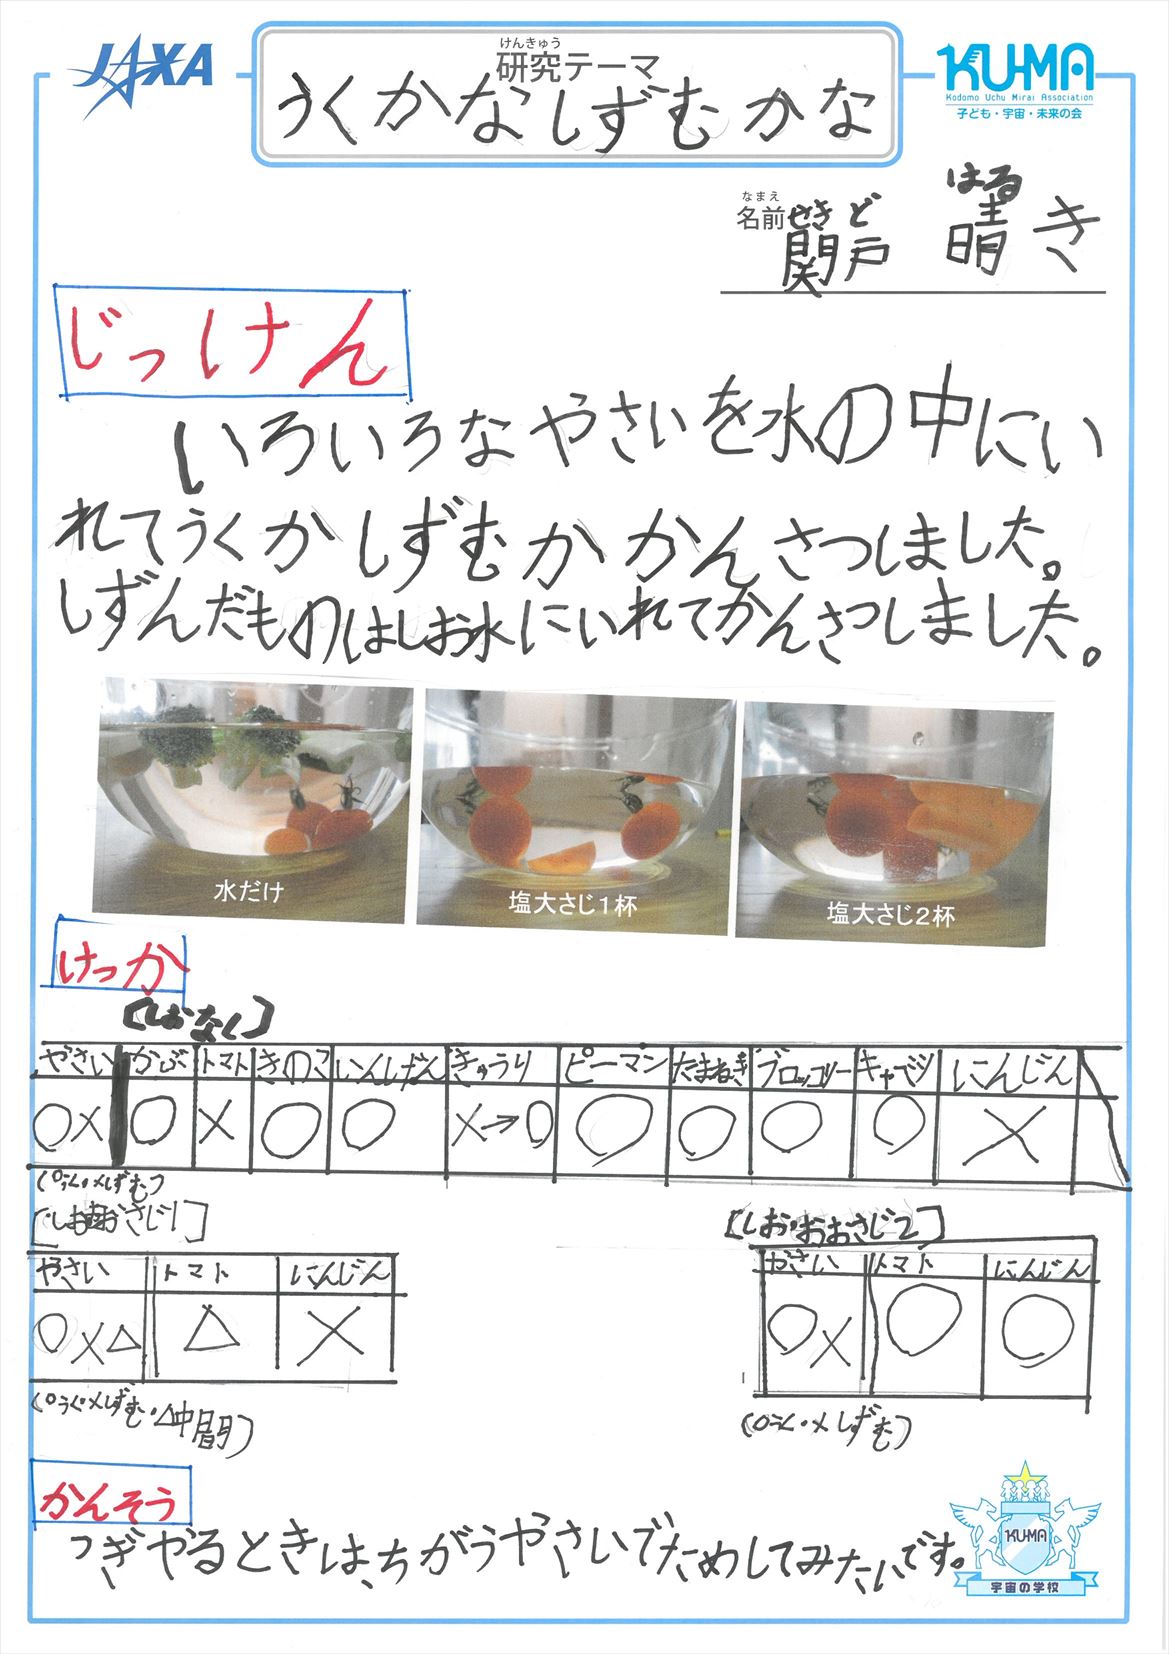 JAXA
けんきゅう
研究テーマ
うくかなしずむかな
KU-MA
Kodomo Uchu Mirai Association
子ども・宇宙・未来の会
なまえ
名前
せきど はる
関戸 晴き
じっけん
いろいろなやさいを水の中にい
れてうくかしずむかかんさつしました。
しずんだものはしお水にいれてかんさつしました。
水だけ
塩大さじ1杯
塩大さじ2杯
けっか
【しおなし】
やさい かぶ トマト きのこ いんげん きゅうり ピーマン たまねぎ ブロッコリー キャベツ にんじん
○× ○ × ○ ○ ×→○ ○ ○ ○ ○ ×
(○うく・×しずむ)
【しおおおさじ1】
やさい トマト にんじん
○×△ △ ×
(○うく・×しずむ・△中間)
【しお・おおさじ2】
やさい トマト にんじん
○× ○ ○
(○うく・×しずむ)
かんそう
つぎやるときは、ちがうやさいでためしてみたいです。
KU-MA
宇宙の学校